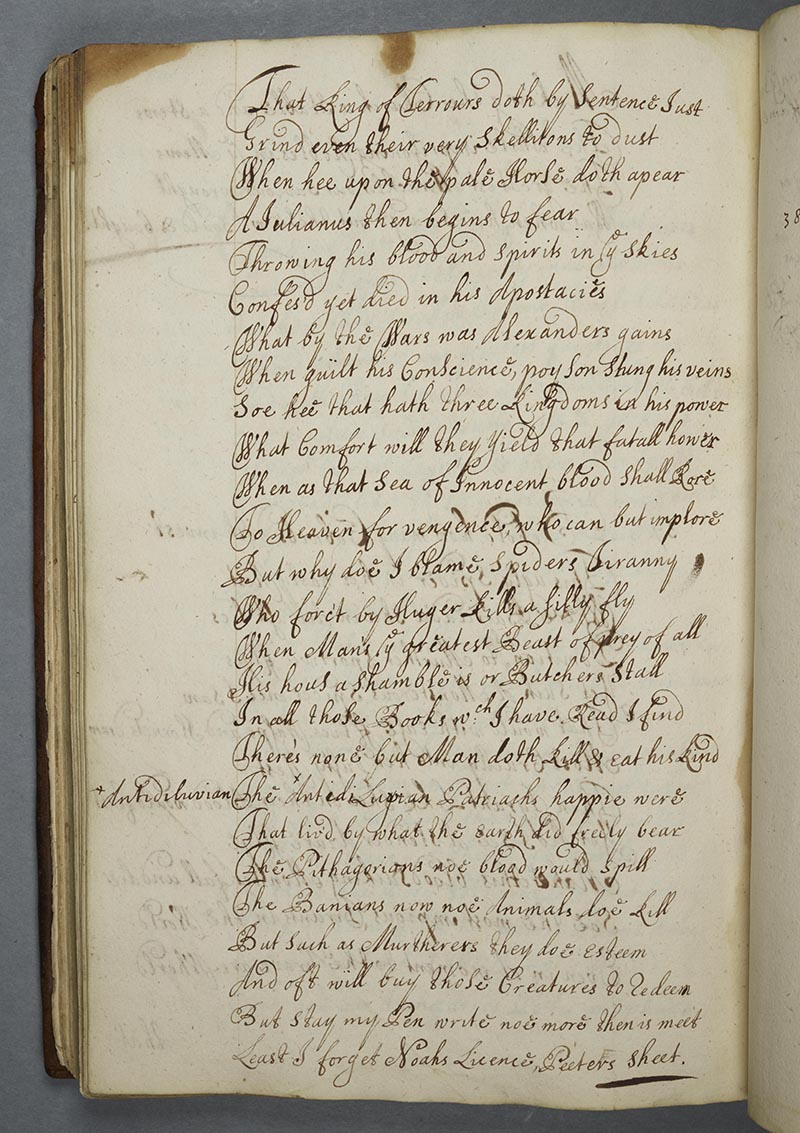 That King of Terrours doth by Sentence Just
Grind even their very Skellitons to dust
When hee upon the pale Horse doth apear
A Julianus then begins to fear
Throwing his blood and spirits in ye skies
Confes'd yet died in his Apostacies
What by the Wars was Alexanders gains
When guilt his Conscience, poyson stung his veins
Soe hee that hath three Kingdoms in his power
What Comfort will they yield that fatall hower
When as that Sea of Innocent blood shall Rore
To Heaven for vengence, who can but implore
But why doe I blame, Spiders Tiranny
Who forc't by Huger kills a silly fly
When Man's ye greatest Beast of prey of all
His hous a shamble is or Butchers Stall
In all those Books wch I have Read I find
There's none but Man doth kill & eat his kind
+Antidiluvian The +Antidiluvian Patriachs happie were
That liv'd by what the earth did freely bear
The Pithagorians noe blood would spill
The Banians now noe Animals doe kill
But such as Murtherers they doe esteem
And oft will buy those Creatures to redeem
But stay my Pen write noe more then is meet
Least I forget Noahs Licence, Peeters sheet.
38